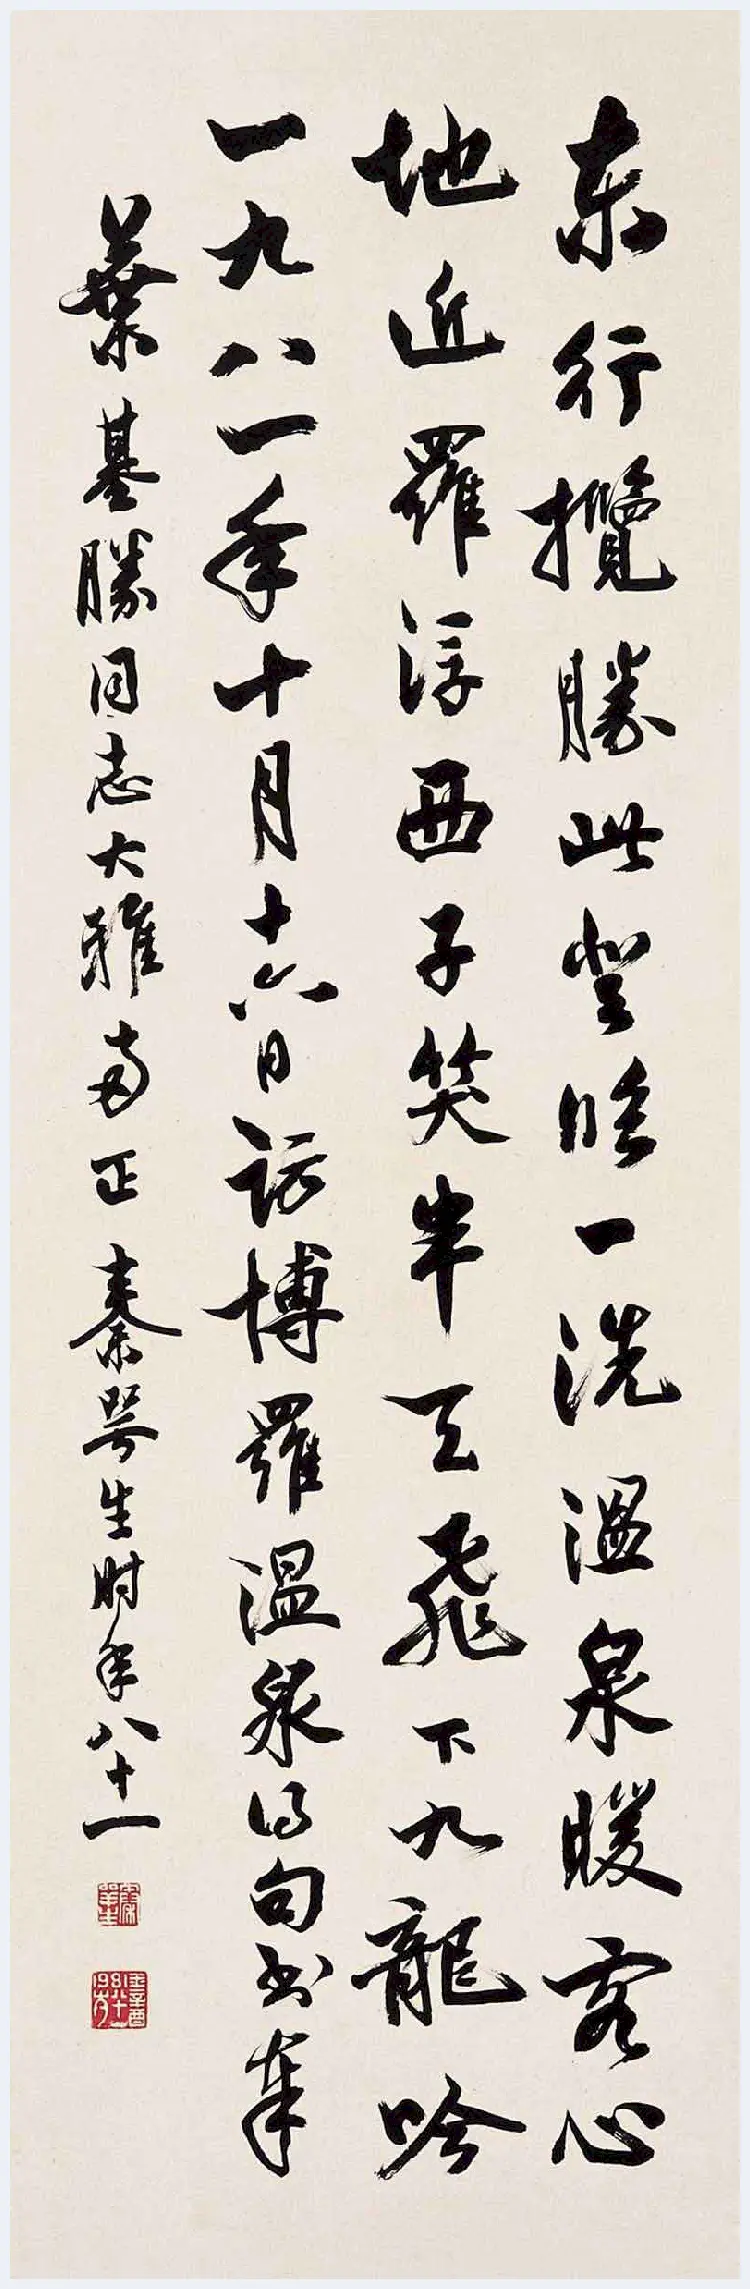 东行攬勝此登临一洗溫泉暖客心
地近羅浮西子笑半天飛下九龍吟
一九八一年十月十六日訪博羅溫泉得句书奉
葉基勝同志大雅两正 秦咢生时年八十一